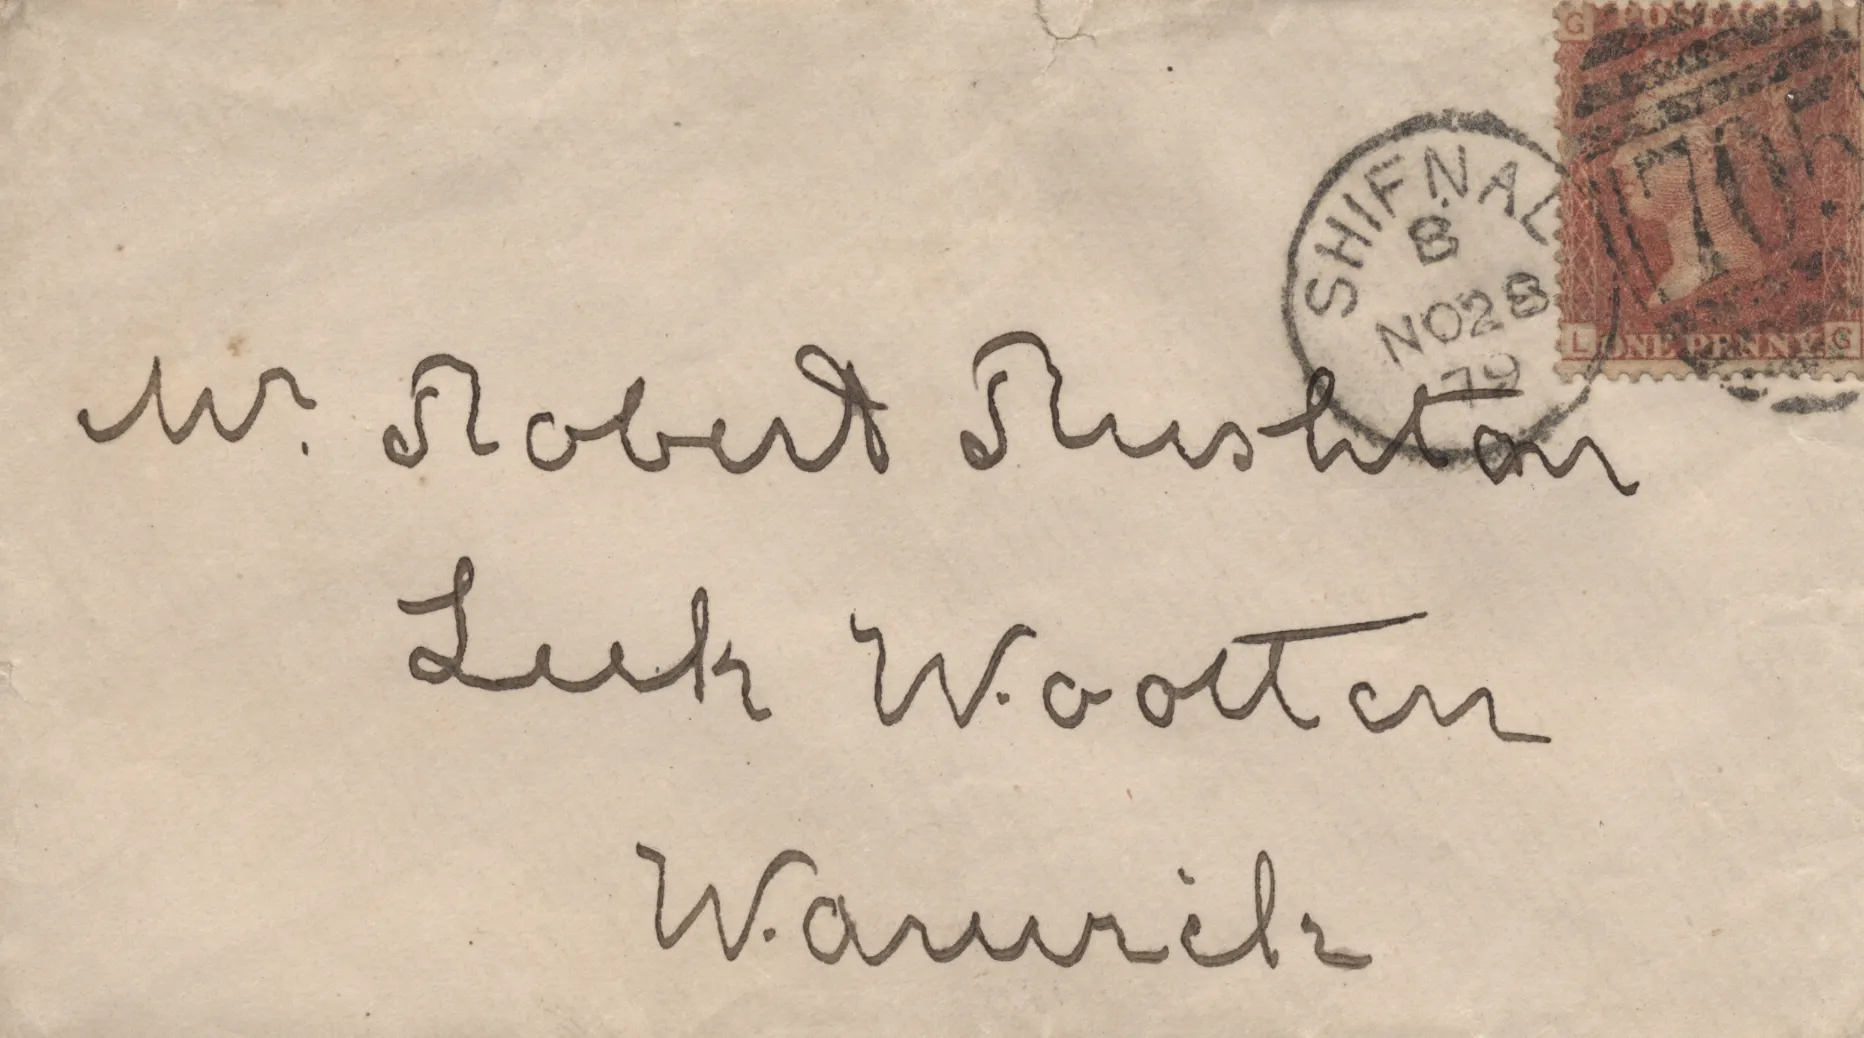 G POSTAGE L
SHIFNAL
B
NO 28
79
705
L ONE PENNY G
Mr. Robert Rushton
Leek Wootton
Warwick